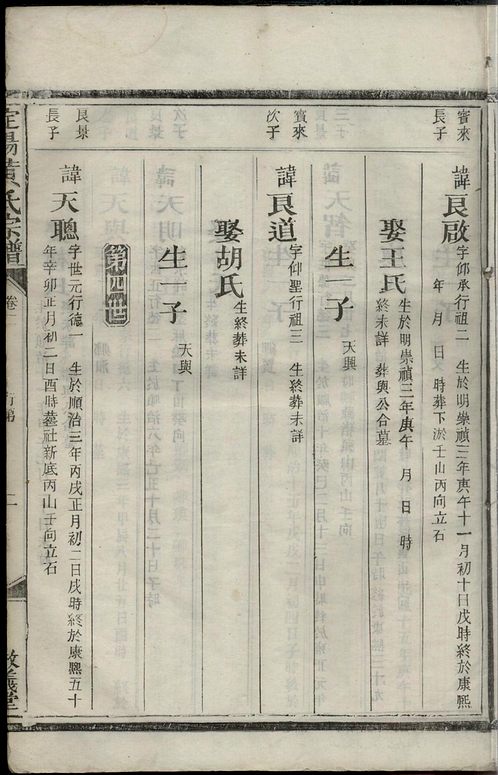 賓來
長子
諱良啟
字仰承行祖二　生於明崇禎三年庚午十一月初十日戌時終於康熙
年　月　日　時葬下淤壬山丙向立石
娶王氏
生於明崇禎三年庚午　月　日　時
終未詳　葬與公合墓
生一子
天興
賓來
次子
諱良道
字仰聖行祖三　生終葬未詳
娶胡氏
生終葬未詳
生一子
天與
第四世
良景
長子
諱天聰
字世元行德一　生於順治三年丙戌正月初二日戌時終於康熙五十
年辛卯正月初二日酉時墓社新底丙山壬向立石
定陽黃氏宗譜
卷
二
敦義堂